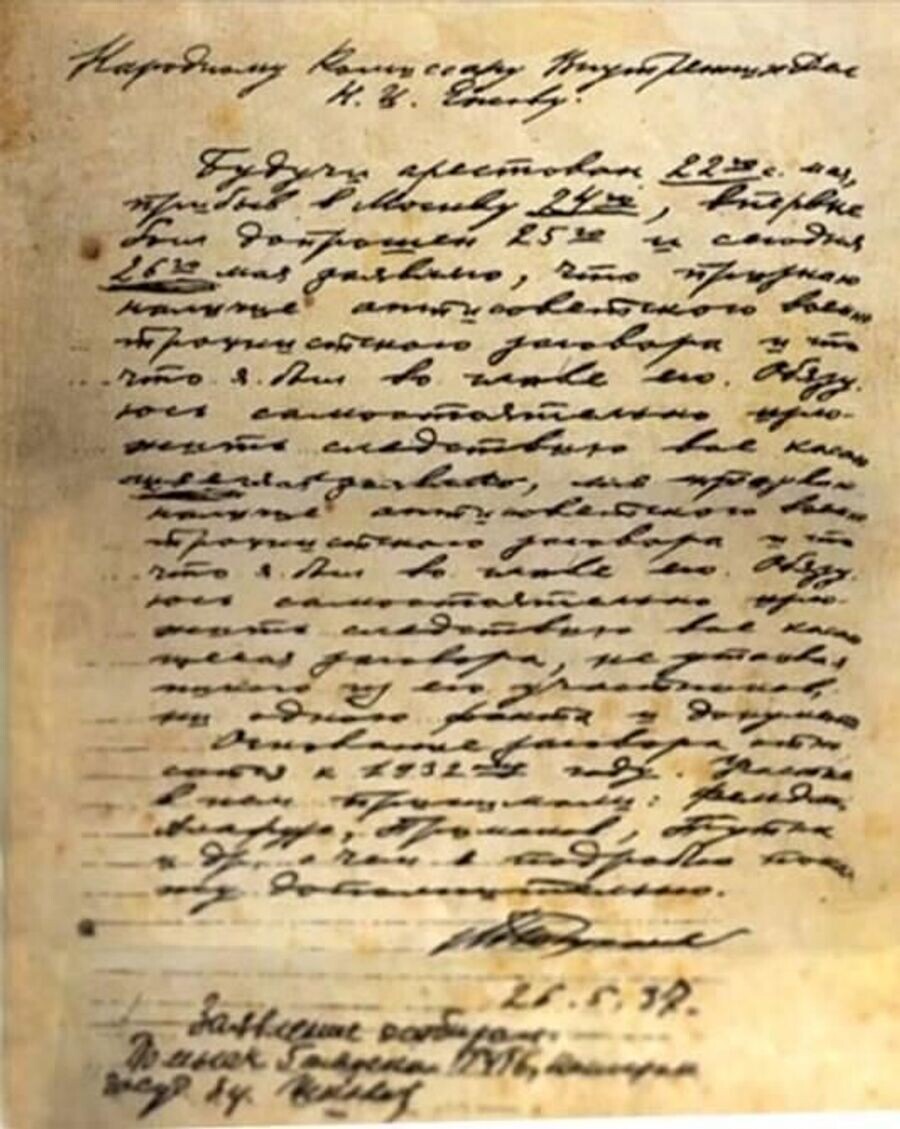 Народному Комиссару Внутренних Дел
Н. И. Ежову.
Будучи арестован 22го с. мая,
прибыв в Москву 24го, впервые
был допрошен 25го и сегодня
26го мая заявляю, что признаю
наличие антисоветского военно
троцкистского заговора и то
что я был во главе его. Обязу
юсь самостоятельно изло-
жить следствию все касаю
наличие антисоветского военно
троцкистского заговора и то
что я был во главе его. Обязу
юсь самостоятельно изло-
жить следствию все касаю
щееся заговора, не утаивая
никого из его участников,
ни одного факта и документа
Основание заговора отно
сится к 1932му году. Участие
в нем принимали: Фельдман,
Алафузо, Примаков, Путна
и др., о чем я подробно пока
жу дополнительно.
26.5.37.
Заявление отобрал:
Помнач 5 отдела ГУГБ, капитан
госуд. без.